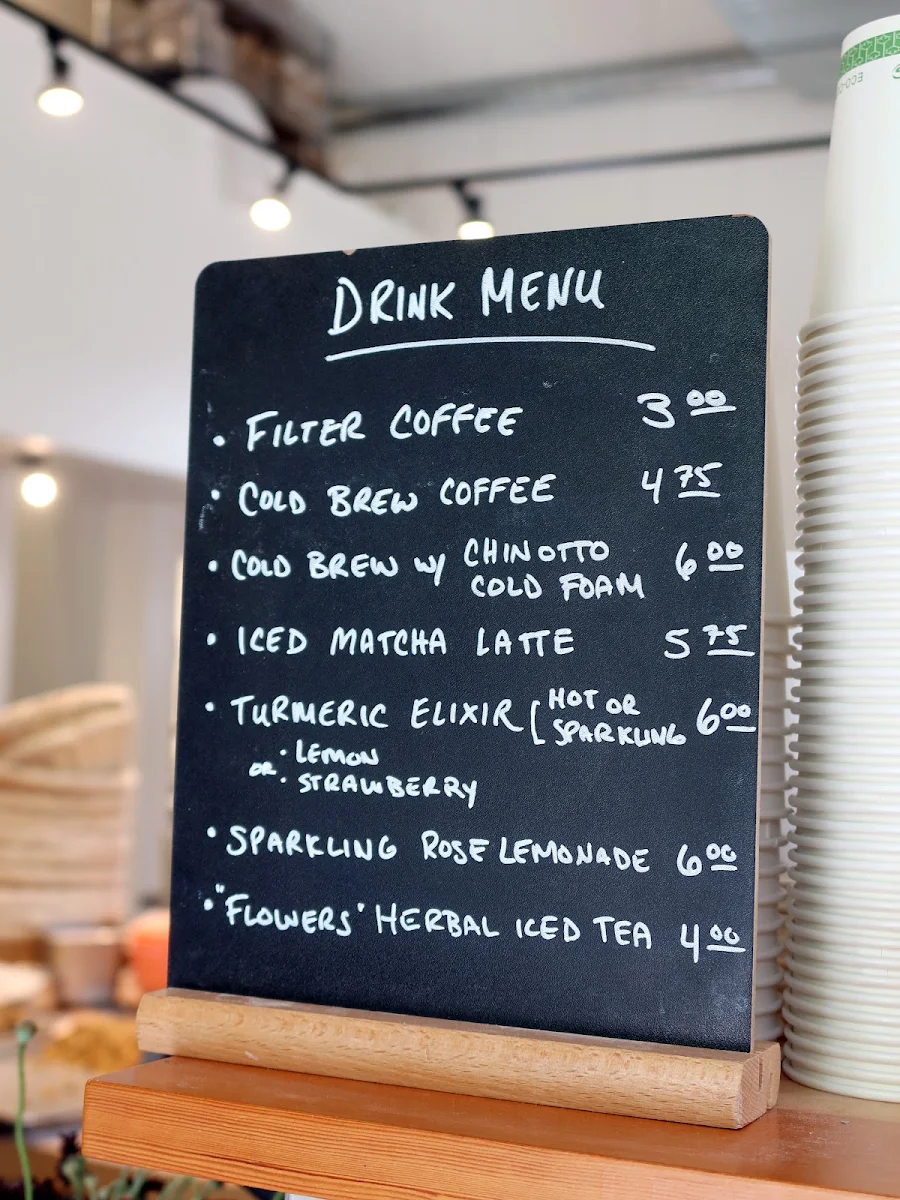 DRINK MENU
• FILTER COFFEE 3 00
• COLD BREW COFFEE 4 75
• COLD BREW W/ CHINOTTO 6 00
COLD FOAM
• ICED MATCHA LATTE 5 75
• TURMERIC ELIXIR [HOT OR
SPARKLING 6 00
• LEMON
OR • STRAWBERRY
• SPARKLING ROSE LEMONADE 6 00
• "FLOWERS" HERBAL ICED TEA 4 00